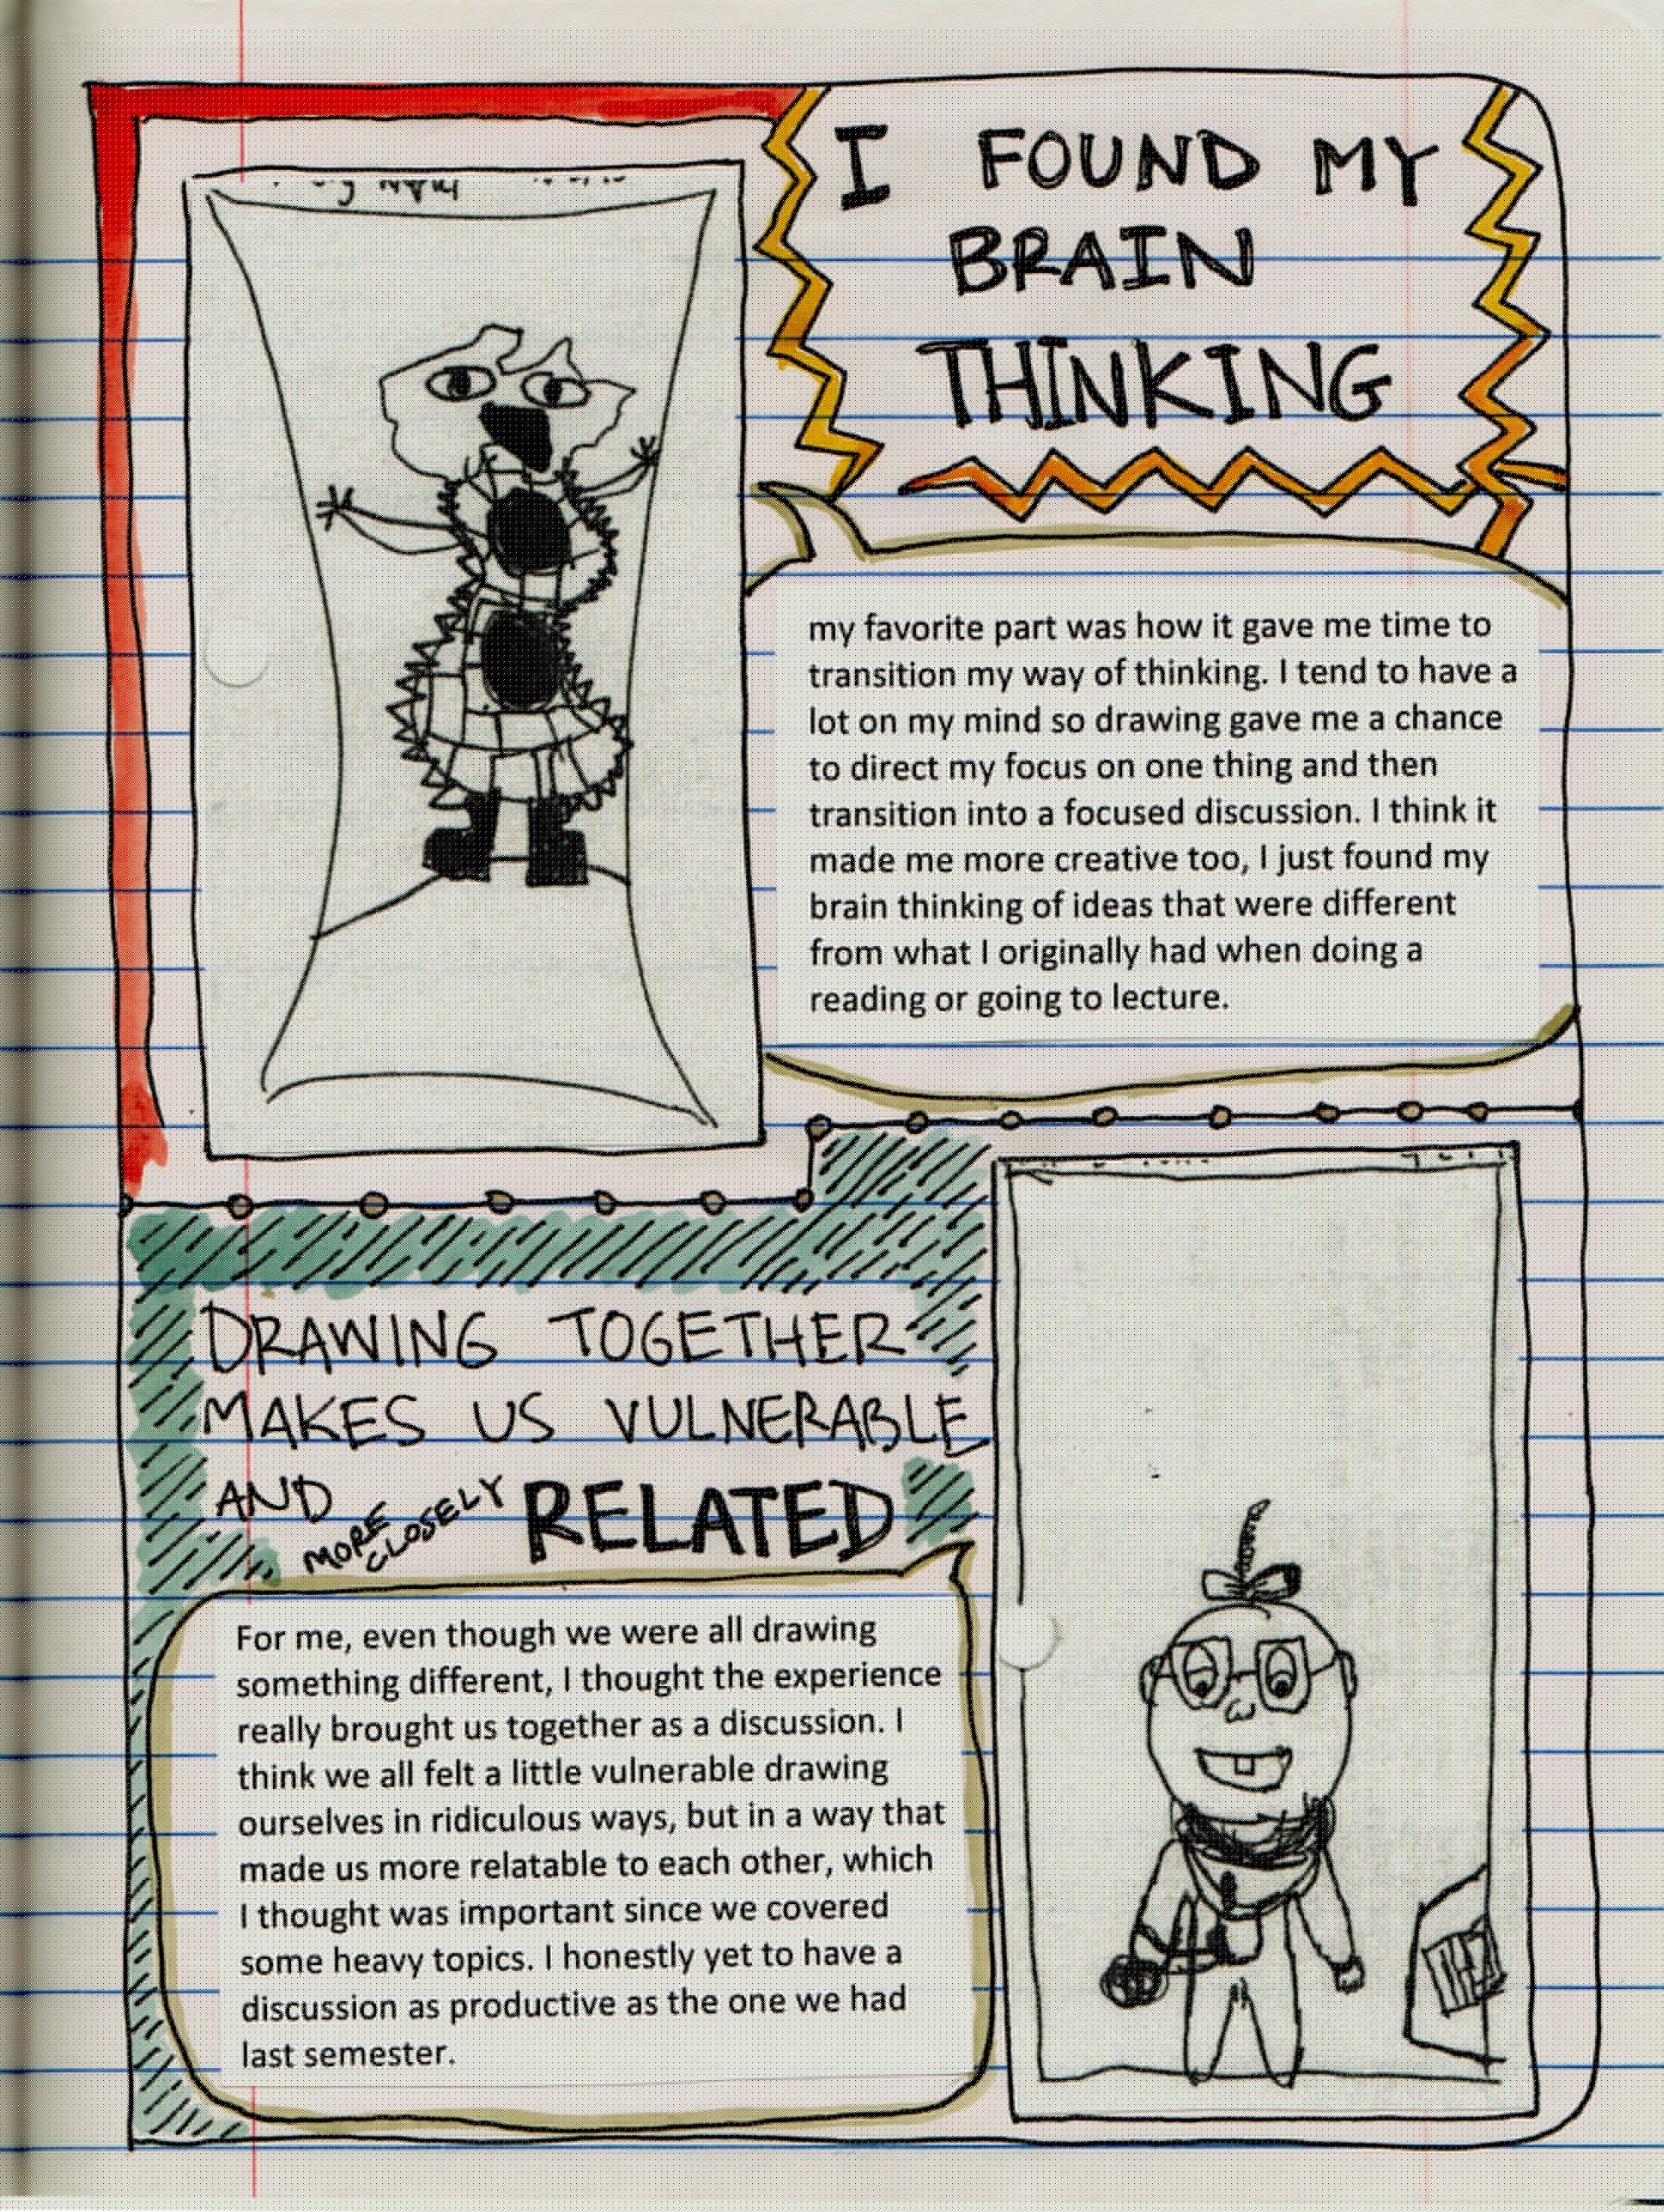 I FOUND MY
BRAIN
THINKING
my favorite part was how it gave me time to
transition my way of thinking. I tend to have a
lot on my mind so drawing gave me a chance
to direct my focus on one thing and then
transition into a focused discussion. I think it
made me more creative too, I just found my
brain thinking of ideas that were different
from what I originally had when doing a
reading or going to lecture.
DRAWING TOGETHER
MAKES US VULNERABLE
AND MORE CLOSELY RELATED
For me, even though we were all drawing
something different, I thought the experience
really brought us together as a discussion. I
think we all felt a little vulnerable drawing
ourselves in ridiculous ways, but in a way that
made us more relatable to each other, which
I thought was important since we covered
some heavy topics. I honestly yet to have a
discussion as productive as the one we had
last semester.